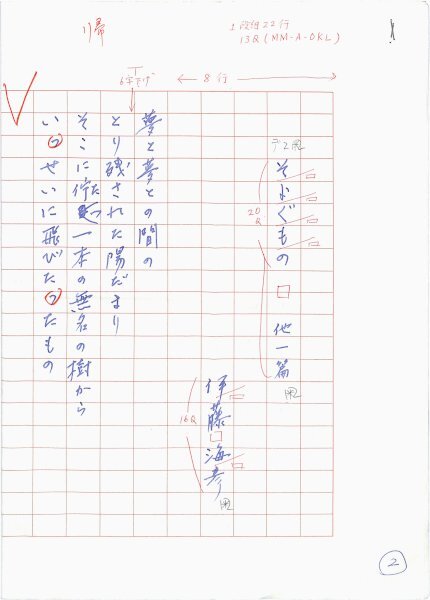 1段組22行
13Q(MM-A-OKL)
← 8行 →
6字下ゲ
そよぐもの □ 他一篇
20Q
伊藤□海彦
16Q
夢と夢との間の
とり残された陽だまり
そこに佇つ一本の無名の樹から
いっせいに飛びたったもの
2